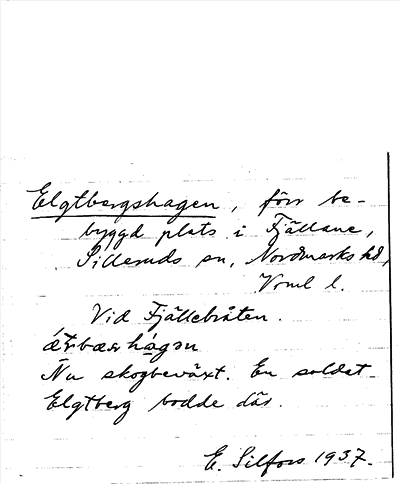 Elgtbergshagen, förr be-
byggd plats i Fjällane,
Silleruds sn, Nordmarks hd,
Vrml l.
Vid Fjällebråten.
hágən
Nu skogbeväxt. En soldat
Elgtberg bodde där.
E. Silfors 1937.